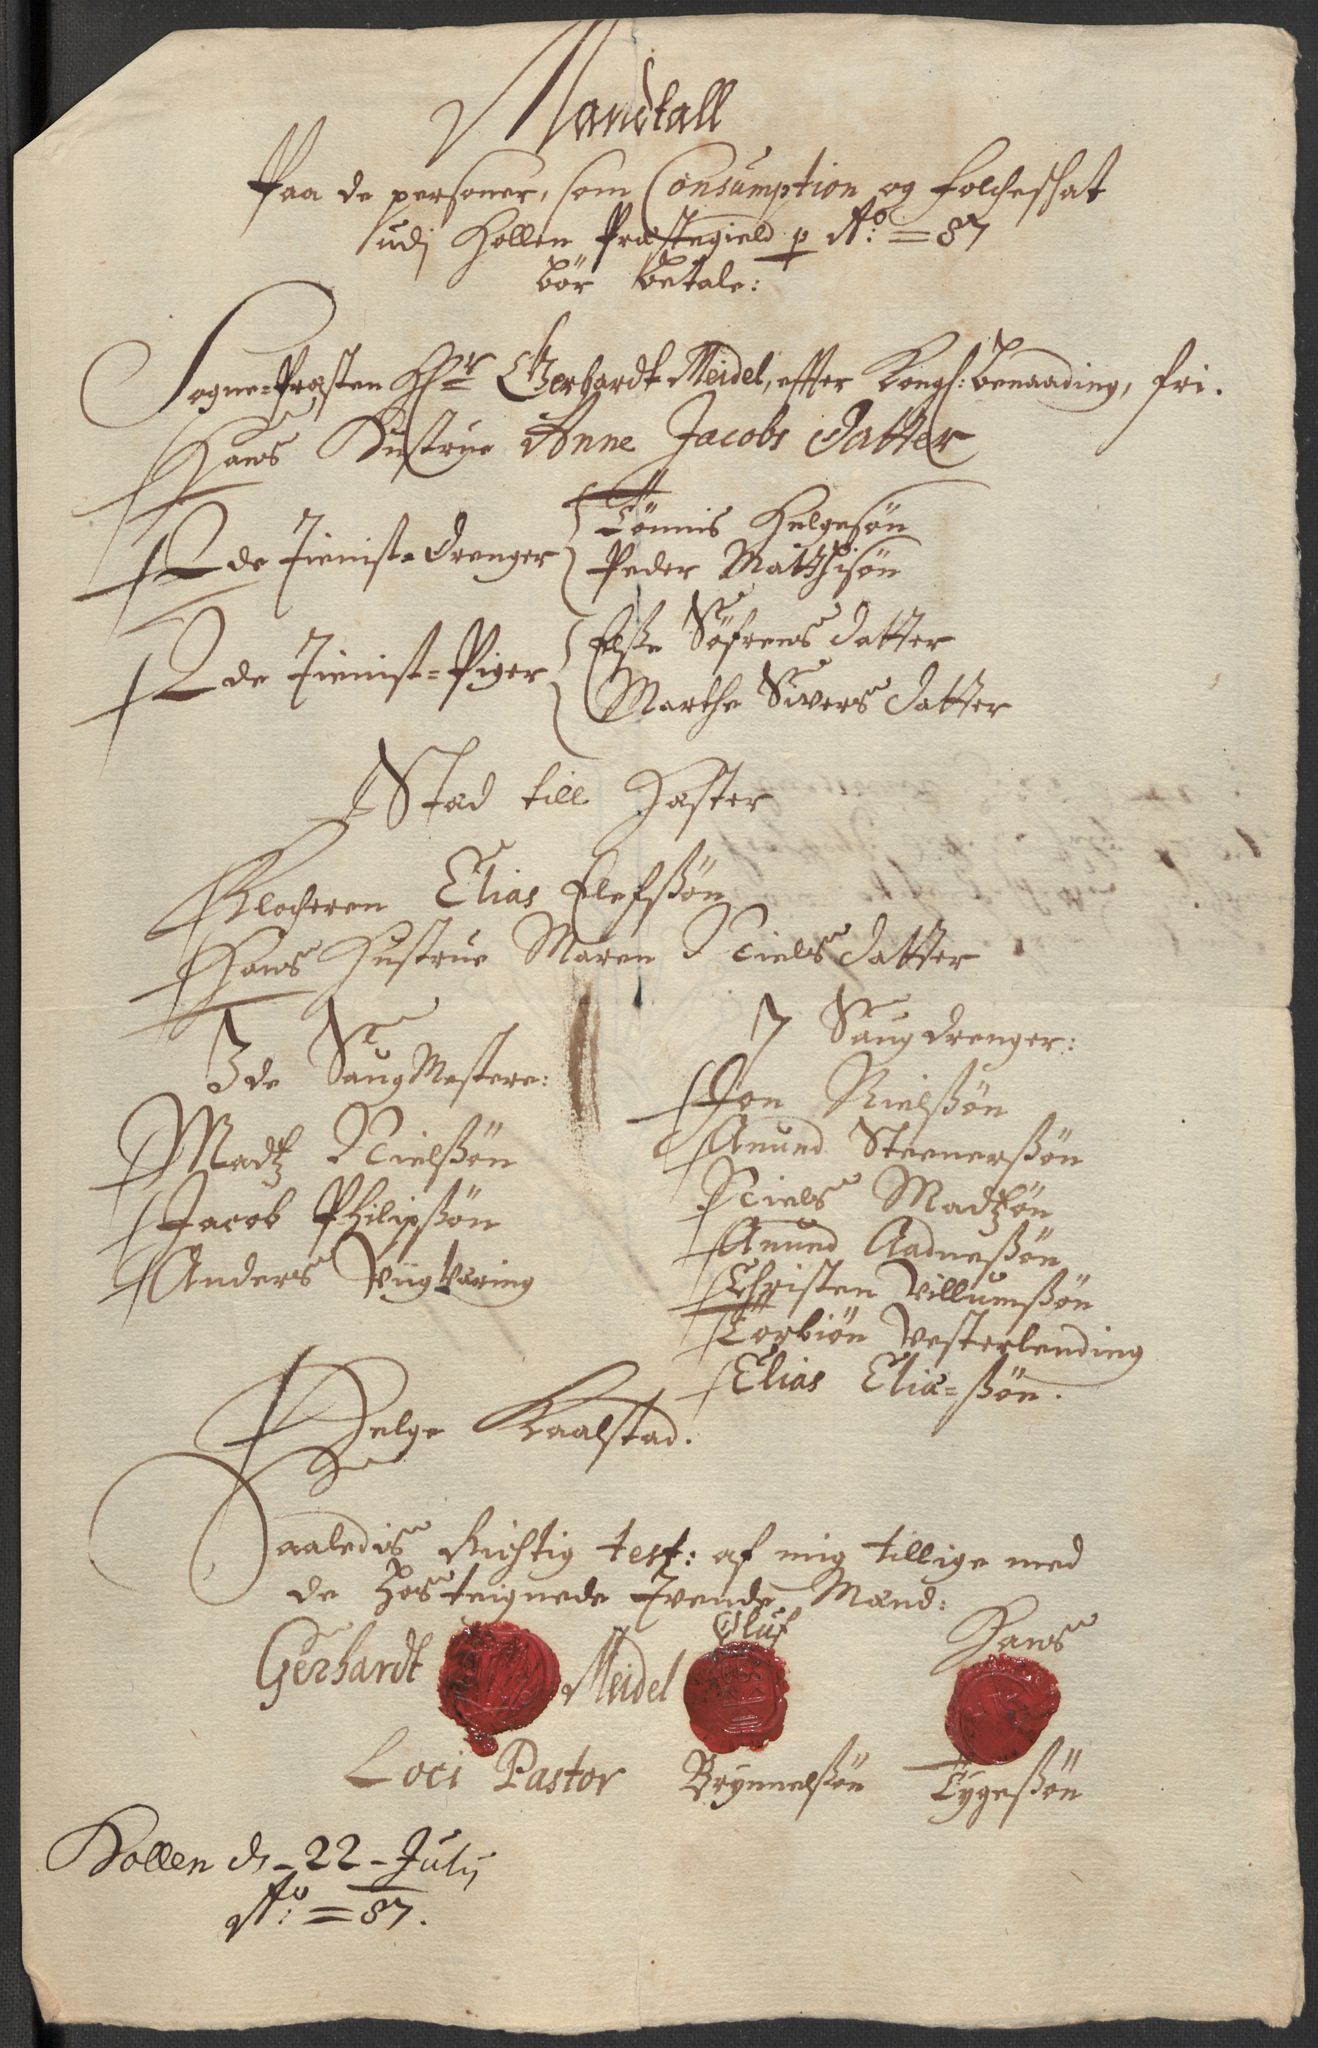 Mandtall
Paa de personer, som Consumption og folcheschat
udj Hollen Præstegield p Ao: = 87
bör betale:
Sogne-Præsten Hr Gerhardt Meidel, effter Kongl: benaading, fri.
Hans Hustrue Anne Jacobs Datter
2 de Tienist-Drenger
Tönnis Helgesön
Peder Matthisön
2 de Tienist-Piger
Elsse Söfrens datter
Marthe Sivers datter
Stad till Hæster
Klocheren Elias Elefssön
Hans Hustrue Maren Niels datter
3 de Saug Mestere:
Madtz Nielssön
Jacob Philipssön
Anders Viigværing
7 Saug drenger:
Jon Nielssön
Anund Steenerssön
Niels Madtzön
Anund Aadnessön
Christen Villumssön
Torbiön Vesterlending
Elias Eliæ-ssön.
Helge Kaalstad.
Saaledis Richtig test: af mig tillige med
de hos teignede tvende Mænd:
Gerhardt Meidel
Loci Pastor
Oluf
Brynnelssön
Hans
Tygessön
Hollen d. 22 - Julij
Ao: = 87.